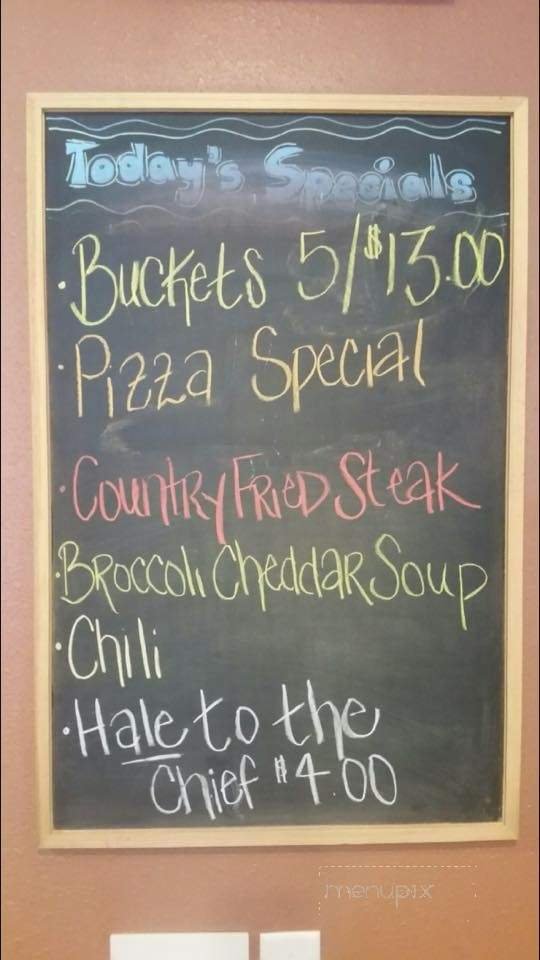 Today's Specials
• Buckets 5/$13.00
• Pizza Special
• Country Fried Steak
• Broccoli Cheddar Soup
• Chili
• Hale to the
Chief $4.00
menupix